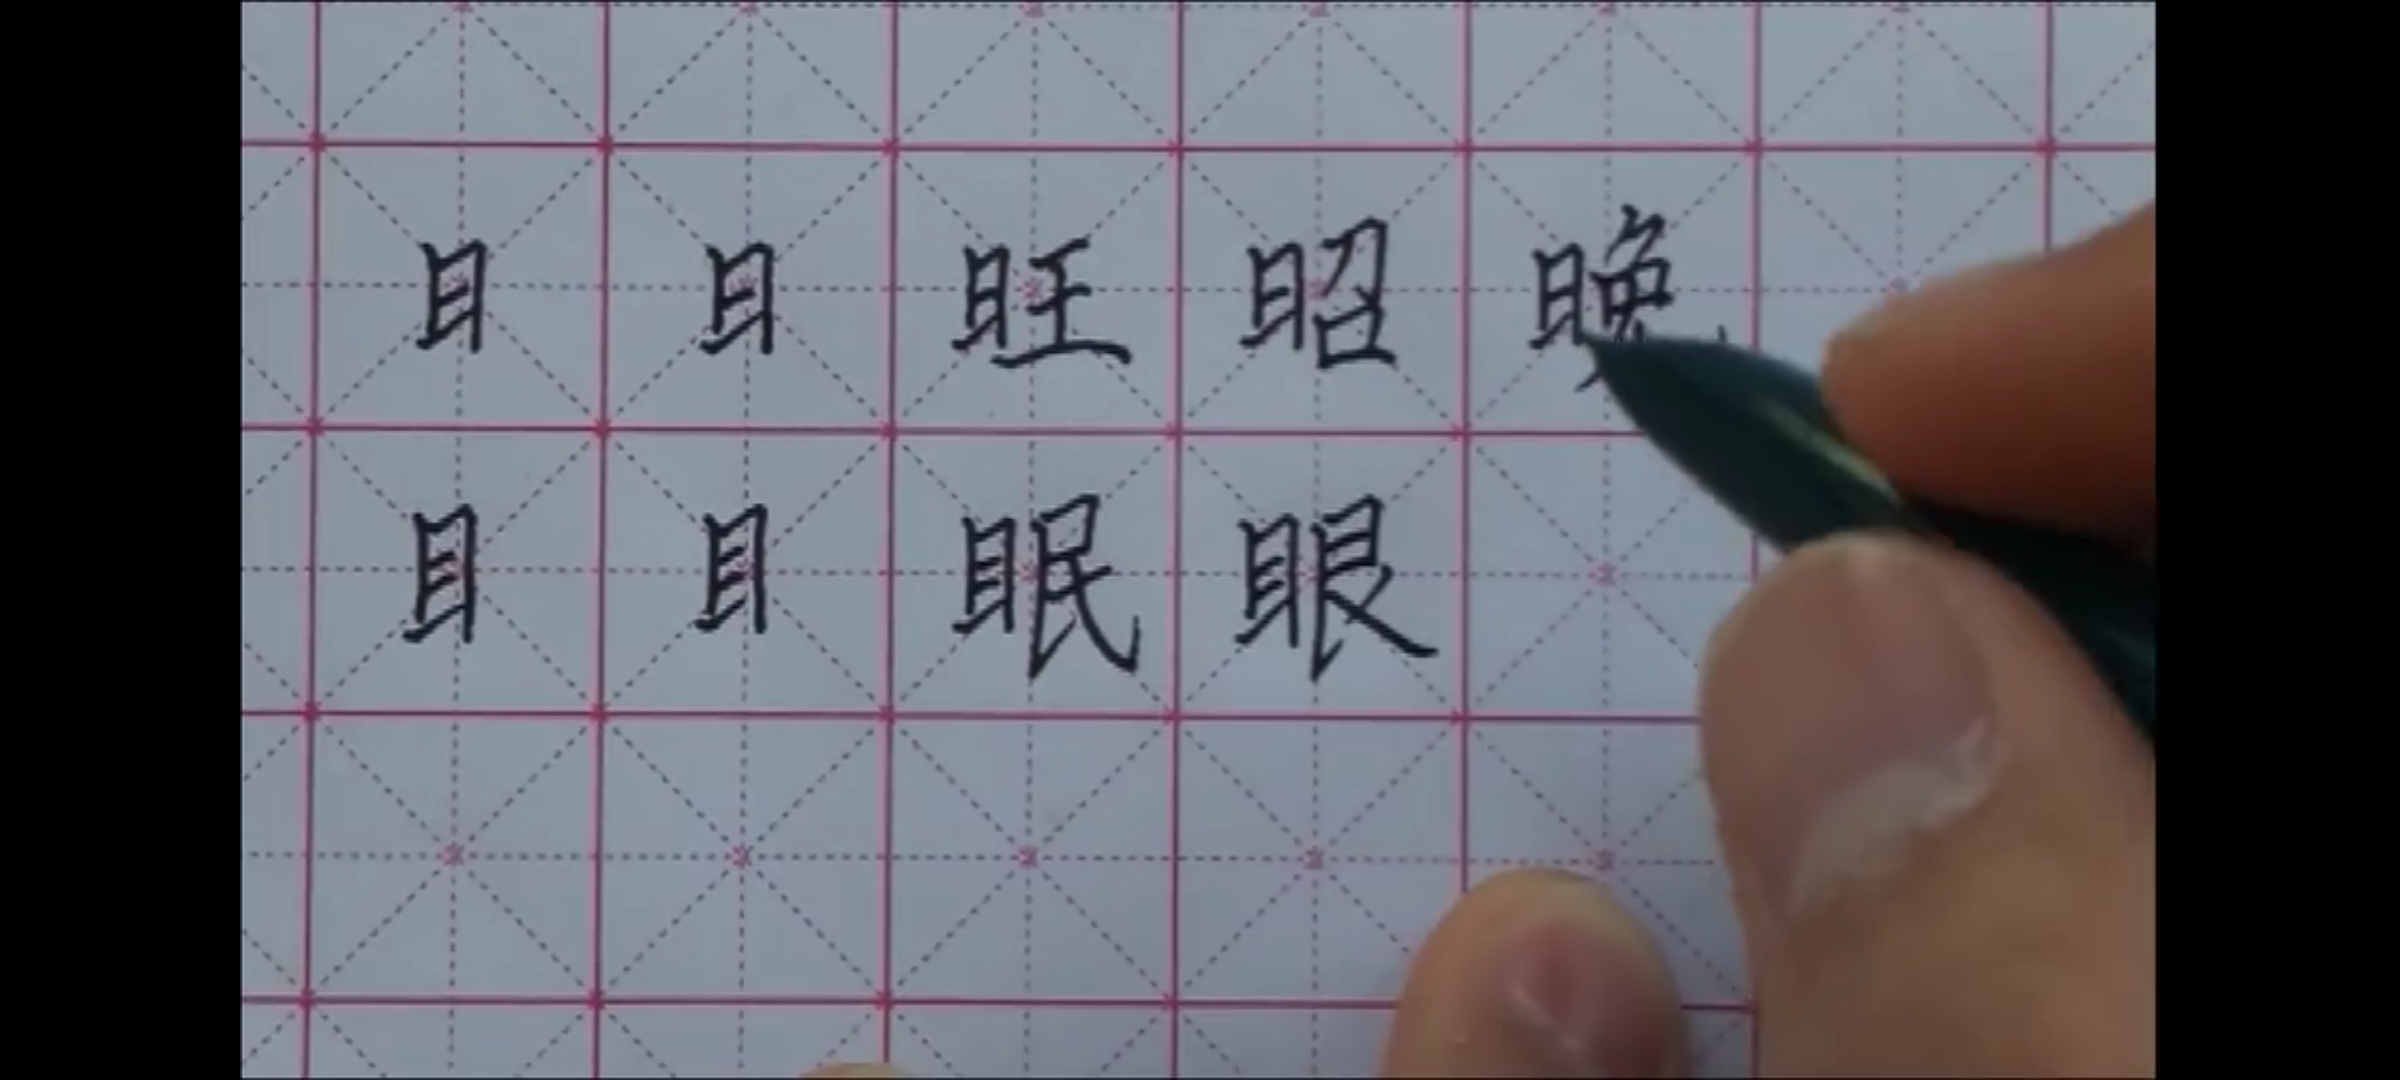 日 日 旺 昭 晚
目 目 眠 眼